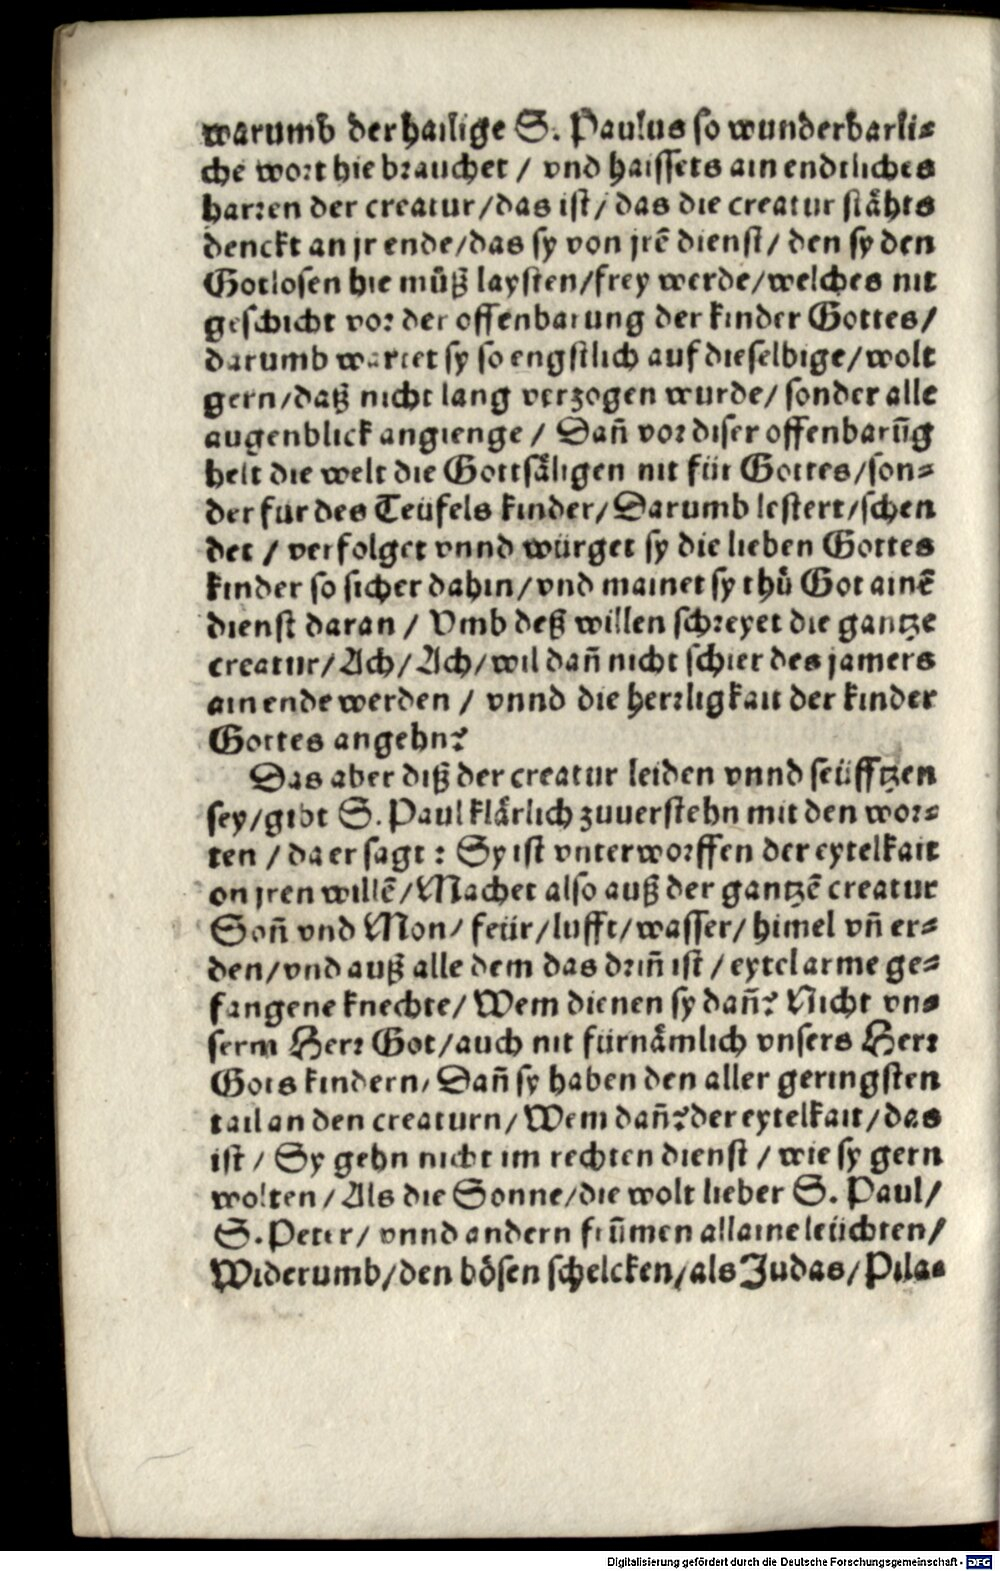 warumb der hailige S. Paulus so wunderbarli⸗
che wort hie brauchet / vnd haissets ain endtliches
harren der creatur/das ist/ das die creatur stähts
denckt an jr ende/das sy von jrē dienst/ den sy den
Gotlosen hie müß laysten/frey werde/welches nit
geschicht vor der offenbarung der kinder Gottes/
darumb wartet sy so engstlich auf dieselbige/wolt
gern/daß nicht lang verzogen wurde/ sonder alle
augenblick angienge / Dañ vor diser offenbarūg
helt die welt die Gottsäligen nit für Gottes/son⸗
der für des Teüfels kinder/Darumb lestert/schen
det / verfolget vnnd würget sy die lieben Gottes
kinder so sicher dahin/vnd mainet sy thů Got ainē
dienst daran / Vmb deß willen schreyet die gantze
creatur/Ach/Ach/wil dañ nicht schier des jamers
ain ende werden / vnnd die herrligkait der kinder
Gottes angehn?
Das aber diß der creatur leiden vnnd seüfftzen
sey/gibt S. Paul klärlich zuuerstehn mit den wor⸗
ten / da er sagt : Sy ist vnterworffen der eytelkait
on jren willē/Machet also auß der gantzē creatur
Soñ vnd Mon/ feür/lufft/wasser/ himel vñ er⸗
den/vnd auß alle dem das driñ ist / eytel arme ge⸗
fangene knechte/ Wem dienen sy dañ? Nicht vn⸗
serm Herr Got/auch nit fürnämlich vnsers Herr
Gots kindern/ Dañ sy haben den aller geringsten
tail an den creaturn/Wem dañ? der eytelkait/das
ist / Sy gehn nicht im rechten dienst / wie sy gern
wolten / Als die Sonne/die wolt lieber S. Paul/
S. Peter/ vnnd andern frūmen allaine leüchten/
Widerumb/den bösen schelcken/als Judas/Pila⸗
Digitalisierung gefördert durch die Deutsche Forschungsgemeinschaft - DFG